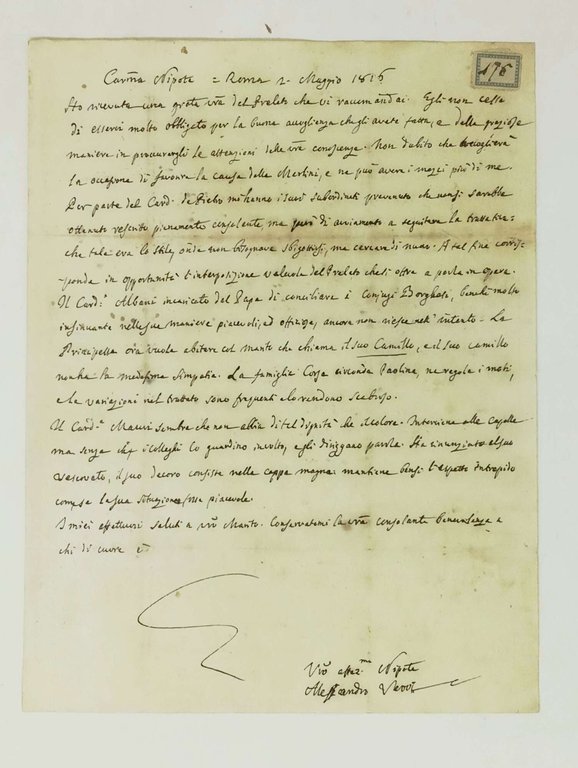 176
Carma Nipote = Roma 2. Maggio 1816
Ho ricevuta una grata vra del Prelato che vi raccomandai. Egli non cessa
di esservi molto obbligato per la buona accoglienza che gli avete fatta, e delle graziose
maniere in procurargli le attenzioni delle vre conoscenze. Non dubito che accoglierà
la occasione di favorire la causa della Merlini, e ne può avere i mezzi più di me.
Per parte del Card. de Pietro mi hanno i suoi subordinati prevenuto che non si sarebbe
ottenuto rescritto pienamente consolante, ma però di avviamento a seguitare la trattativa
che tale era lo stile, onde non bisognava sbigottirsi, ma cercare di nuovo. A tal fine corris-
ponda in opportunità l'interposizione valevole del Prelato che si offre a porla in opera.
Il Card.e Albani incaricato dal Papa di conciliare i conjugi Borghese, benchè molto
insinuante nelle sue maniere piacevoli, ed offiziose, ancora non riesce nell'intento. La
Principessa ora vuole abitare col marito che chiama il suo Camillo, e il suo camillo
non ha la medesima simpatia. La famiglia Corsa circonda Paolina, ne regola i moti,
e le variazioni nel trattato sono frequenti e lo rendono scabroso.
Il Card.e Mauri sembra che non abbia di tal dignità che il colore. Interviene alle Capelle
ma senza che i colleghi lo guardino in volto, e gli dirigano parola. Ha rinunziato al suo
vescovato, il suo decoro consiste nella cappa magna: mantiene bensì l'aspetto intrepido
come se la sua situazione fosse piacevole.
I miei affettuosi saluti a vro Marito. Conservatemi la vra consolante benevolenza a
chi di cuore è
Vro affez.mo Nipote
Alessandro Verri